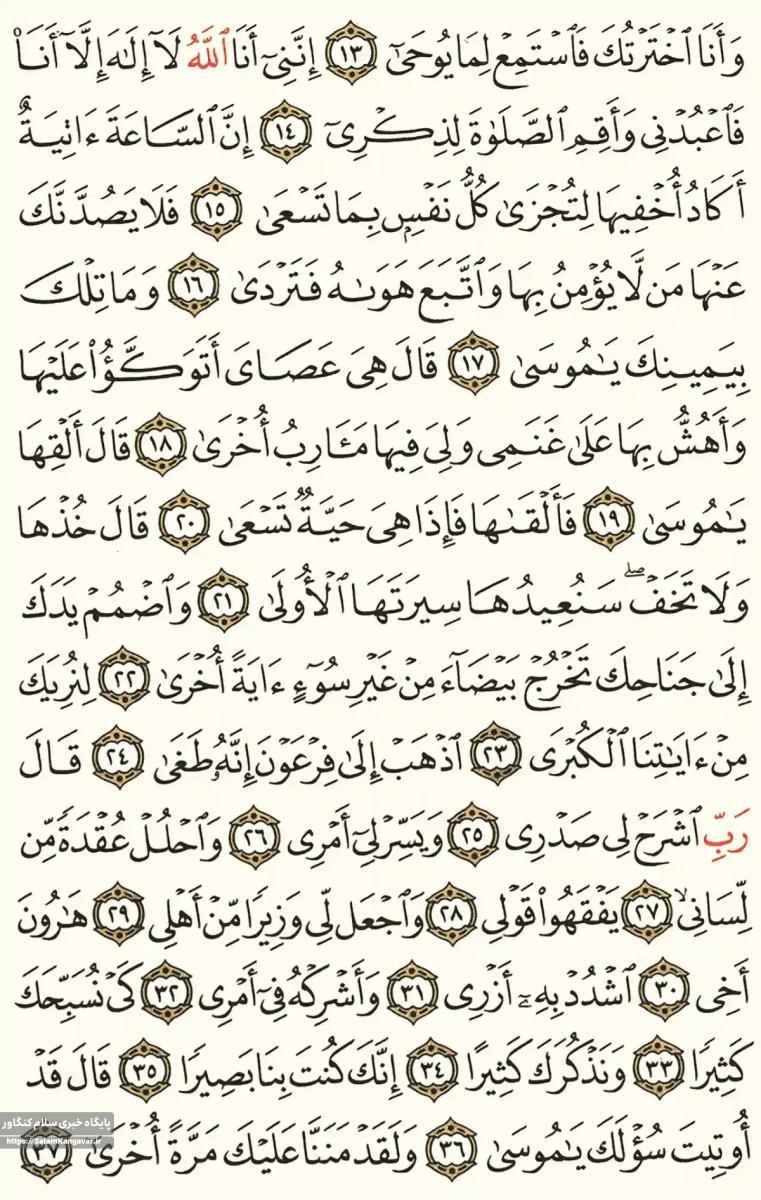 وَأَنَا ٱخْتَرْتُكَ فَٱسْتَمِعْ لِمَا يُوحَىٰٓ ١٣ إِنَّنِىٓ أَنَا ٱللَّهُ لَآ إِلَٰهَ إِلَّآ أَنَا۠
فَٱعْبُدْنِى وَأَقِمِ ٱلصَّلَوٰةَ لِذِكْرِىٓ ١٤ إِنَّ ٱلسَّاعَةَ ءَاتِيَةٌ
أَكَادُ أُخْفِيهَا لِتُجْزَىٰ كُلُّ نَفْسٍۭ بِمَا تَسْعَىٰ ١٥ فَلَا يَصُدَّنَّكَ
عَنْهَا مَن لَّا يُؤْمِنُ بِهَا وَٱتَّبَعَ هَوَىٰهُ فَتَرْدَىٰ ١٦ وَمَا تِلْكَ
بِيَمِينِكَ يَٰمُوسَىٰ ١٧ قَالَ هِىَ عَصَاىَ أَتَوَكَّؤُا۟ عَلَيْهَا
وَأَهُشُّ بِهَا عَلَىٰ غَنَمِى وَلِىَ فِيهَا مَـَٔارِبُ أُخْرَىٰ ١٨ قَالَ أَلْقِهَا
يَٰمُوسَىٰ ١٩ فَأَلْقَىٰهَا فَإِذَا هِىَ حَيَّةٌ تَسْعَىٰ ٢٠ قَالَ خُذْهَا
وَلَا تَخَفْ ۖ سَنُعِيدُهَا سِيرَتَهَا ٱلْأُولَىٰ ٢١ وَٱضْمُمْ يَدَكَ
إِلَىٰ جَنَاحِكَ تَخْرُجْ بَيْضَآءَ مِنْ غَيْرِ سُوٓءٍ ءَايَةً أُخْرَىٰ ٢٢ لِنُرِيَكَ
مِنْ ءَايَٰتِنَا ٱلْكُبْرَى ٢٣ ٱذْهَبْ إِلَىٰ فِرْعَوْنَ إِنَّهُۥ طَغَىٰ ٢٤ قَالَ
رَبِّ ٱشْرَحْ لِى صَدْرِى ٢٥ وَيَسِّرْ لِىٓ أَمْرِى ٢٦ وَٱحْلُلْ عُقْدَةً مِّن
لِّسَانِى ٢٧ يَفْقَهُوا۟ قَوْلِى ٢٨ وَٱجْعَل لِّى وَزِيرًا مِّنْ أَهْلِى ٢٩ هَٰرُونَ
أَخِى ٣٠ ٱشْدُدْ بِهِۦٓ أَزْرِى ٣١ وَأَشْرِكْهُ فِىٓ أَمْرِى ٣٢ كَىْ نُسَبِّحَكَ
كَثِيرًا ٣٣ وَنَذْكُرَكَ كَثِيرًا ٣٤ إِنَّكَ كُنتَ بِنَا بَصِيرًا ٣٥ قَالَ قَدْ
أُوتِيتَ سُؤْلَكَ يَٰمُوسَىٰ ٣٦ وَلَقَدْ مَنَنَّا عَلَيْكَ مَرَّةً أُخْرَىٰٓ ٣٧
پایگاه خبری سلام کنگاور
https://SalamKangavar.ir